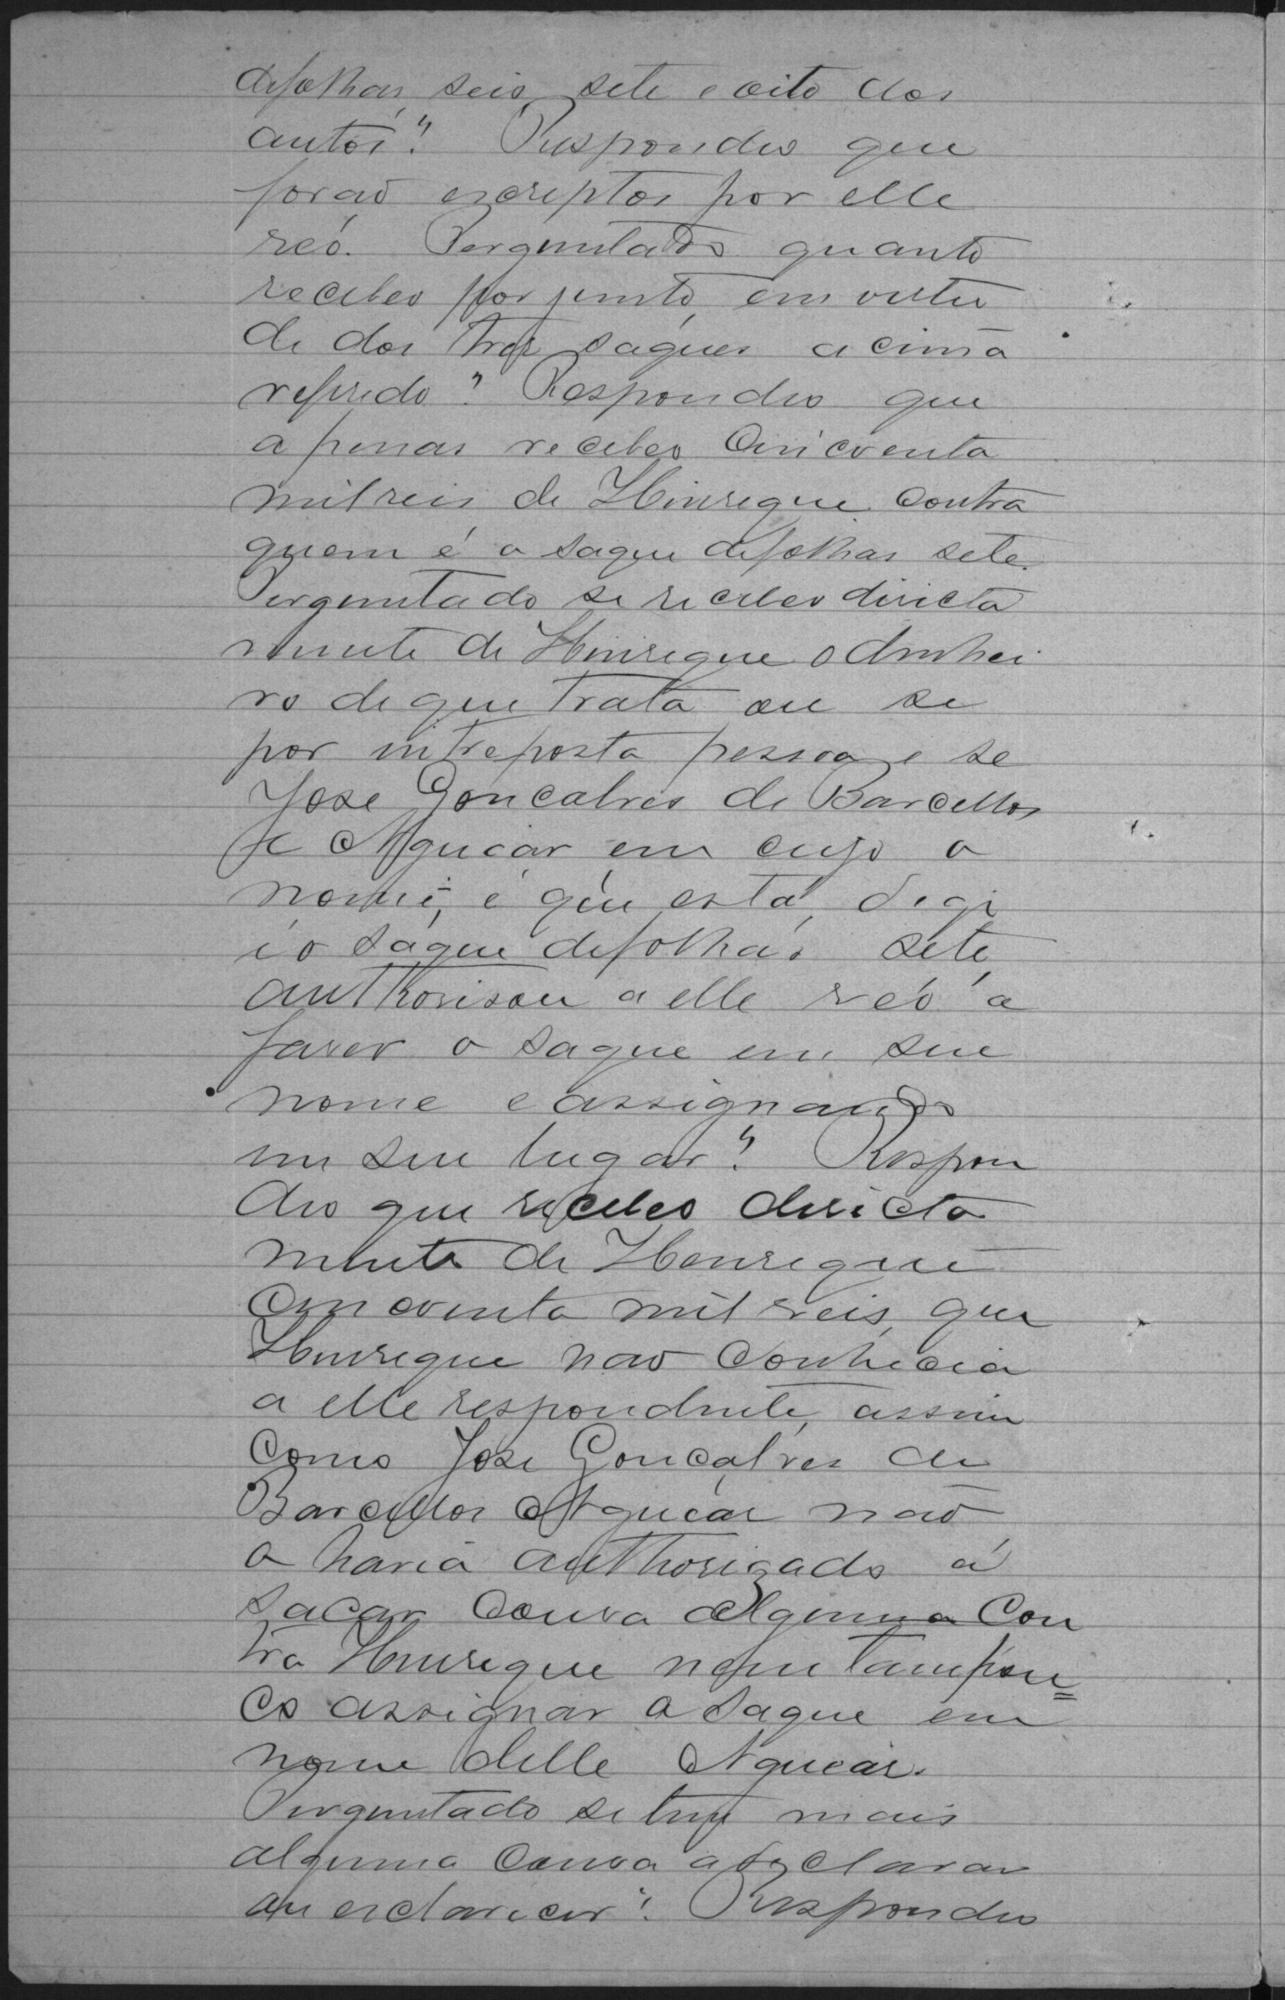 defolhas, seis, sete e oito dos
autos? Respondeo que
forão escriptos por elle
reó. Perguntado quanto
recebeo por junto, em virtu
de dos tres saques acima
referido? Respondeo que
apenas recebeo Cincoenta
mil reis de Hinreque contra
quem é o saque defolhas sete.
Perguntado se recebeo directa
mente de Hinreque o dinhei
ro de que trata ou se
por intreposta pessoa, e se
Jose Goncalves de Barcellos
e Aguiar em cujo o
nome, é que está
é o saque defolhas sete,
authorisou a elle reó a
faser o saque em seu
nome e assignando
em seu lugar? Respon
deo que recebeo directa
mente de Henreque
Cincoenta mil reis, que
Henreque não Conhecia
a elle respondente, assim
Como Jose Gonçalves de
Barcellos Aguiar não
o havia authorizado á
sacar Cousa Alguma Con
tra Henreque nem tampou=
co assignar o saque em
nome delle Aguiar.
Perguntado se tem mais
alguma Cousa a declarar
ou esclarecer? Respondeo